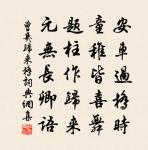 安車過橋時
童稚皆喜舞
題柱作歸来
元無長卿語
歸来橋詞典網集